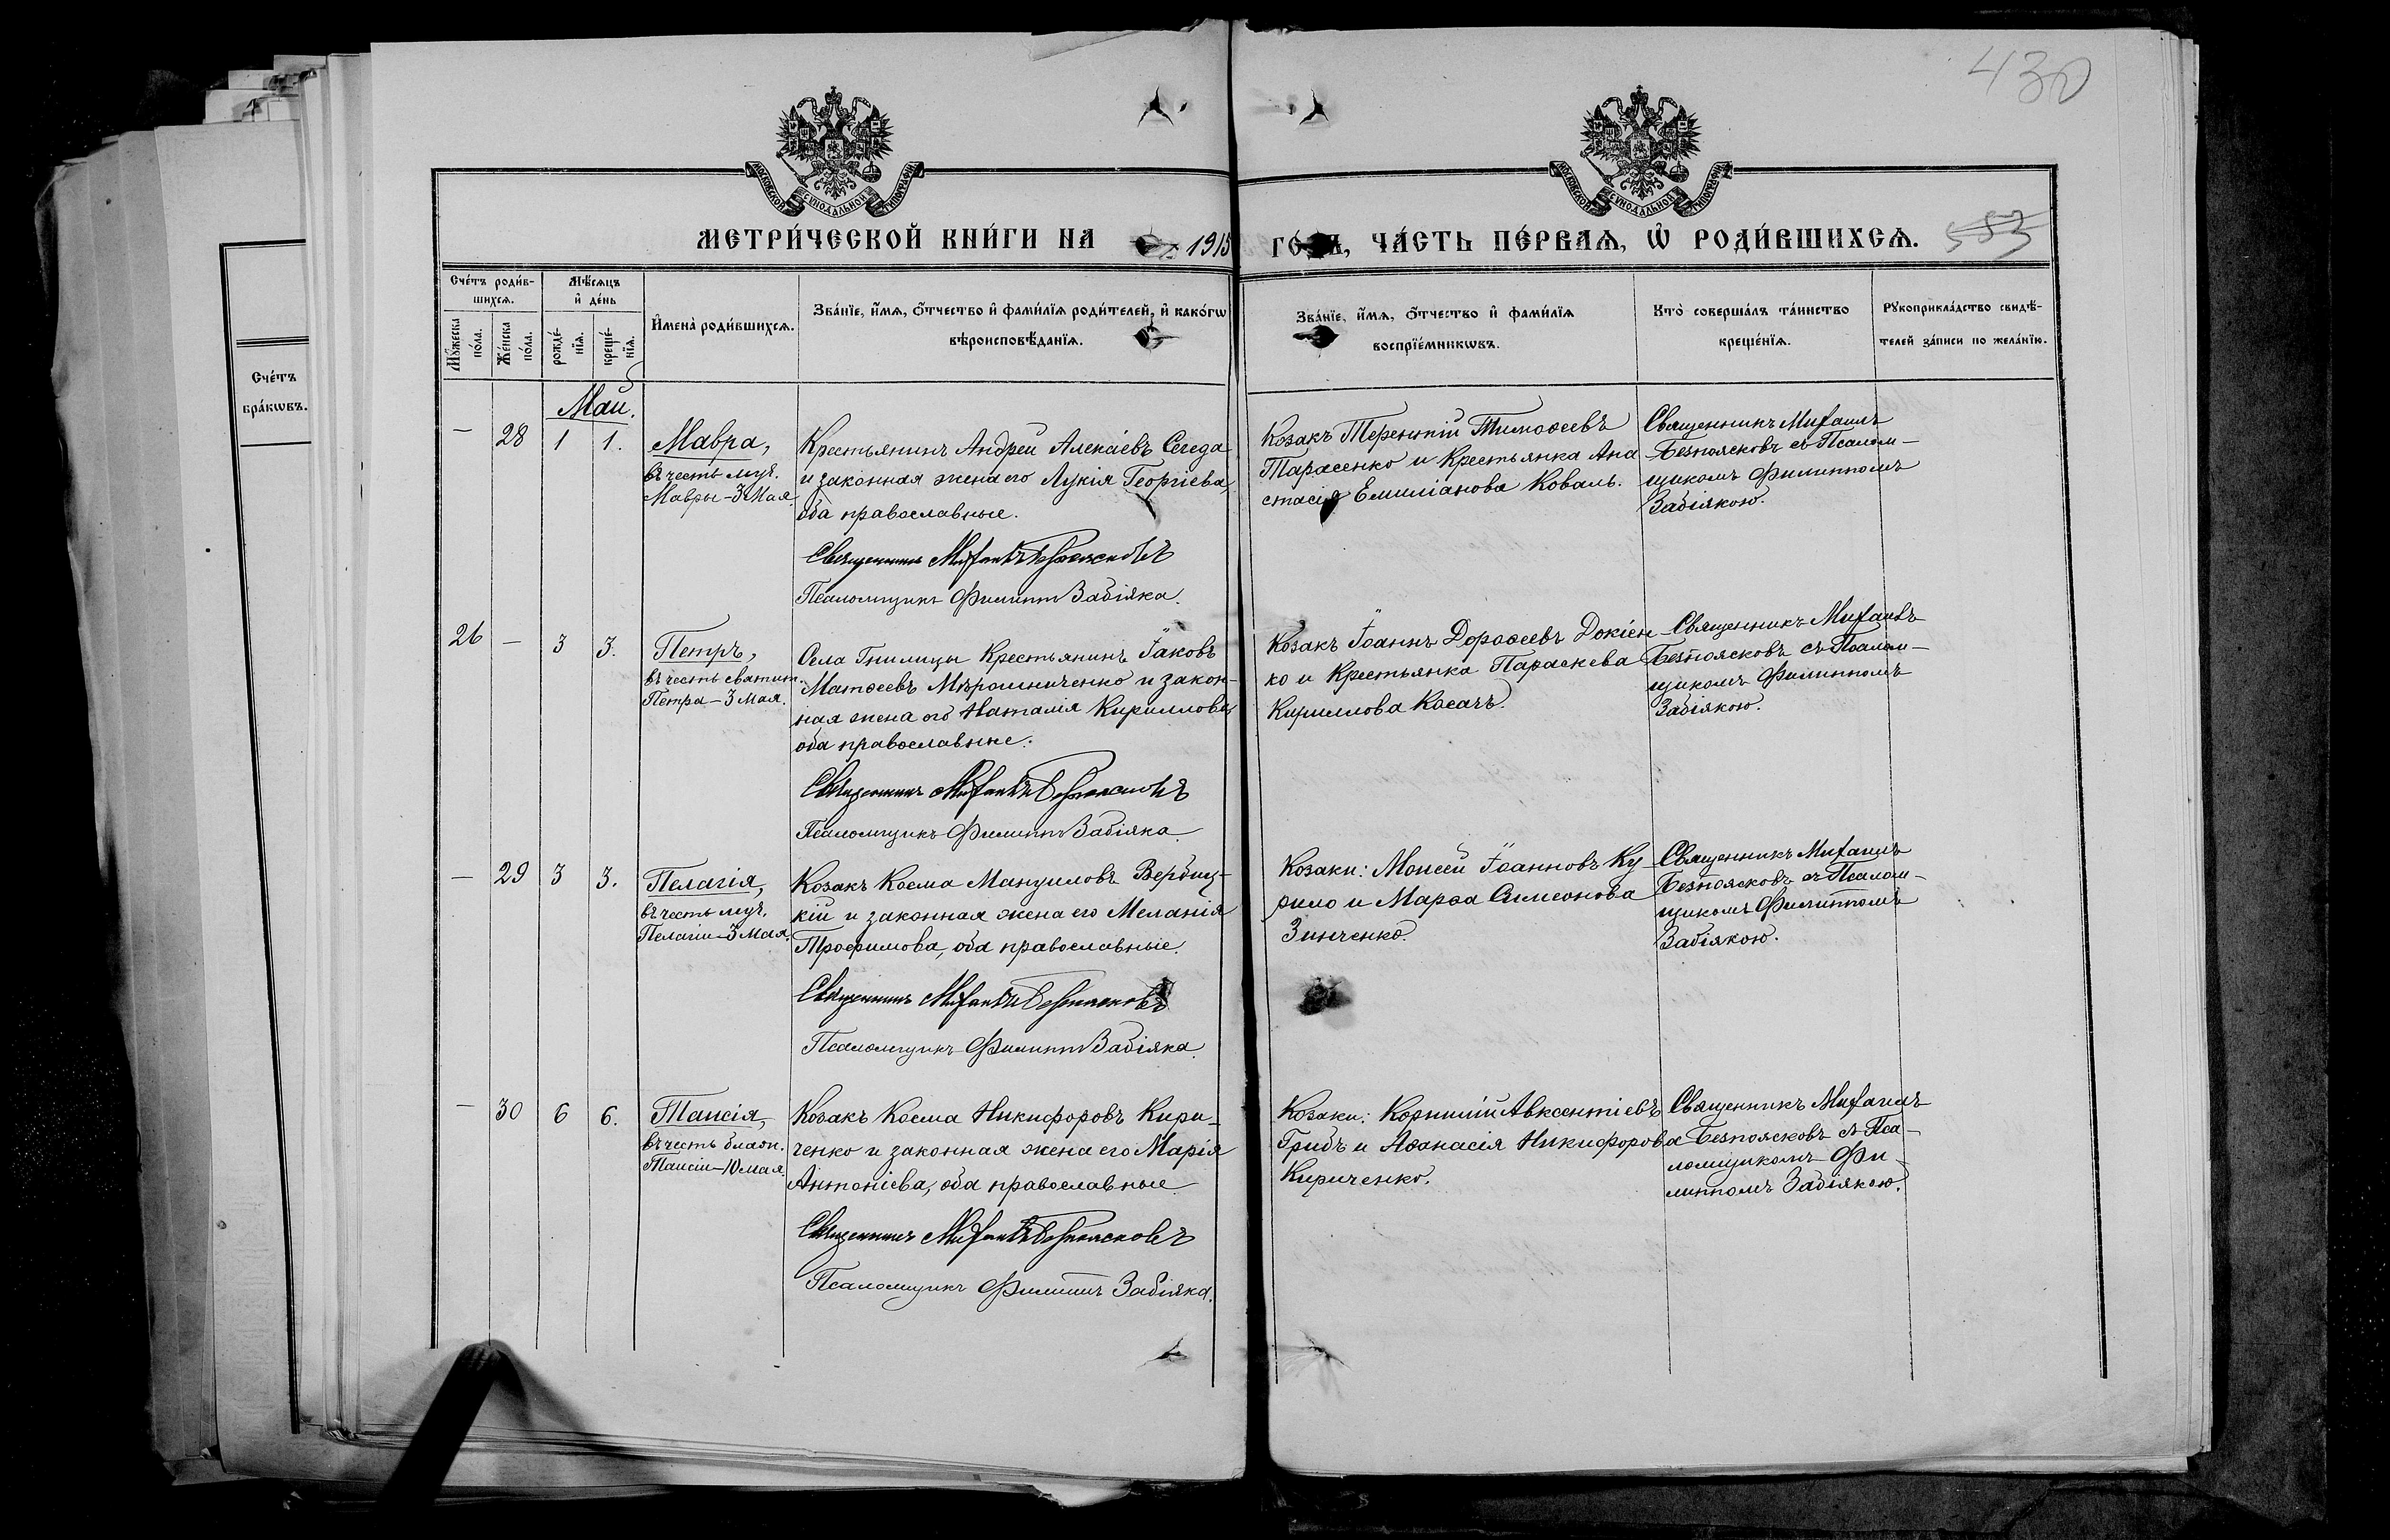 430
МОСКОВСКОЙ СѴНОДАЛЬНОЙ ТИПОГРАФІИ
МОСКОВСКОЙ СѴНОДАЛЬНОЙ ТИПОГРАФІИ
МЕТРИ́ЧЕСКОЙ КНИ́ГИ НА 1915
ЧА́СТЬ ПЕ́РВАѦ, Ѡ҆ РОДИ́ВШИХСѦ.
583
Сче́тъ роди́в-
шихсѧ.
Мѣ́сѧцъ
и҆ де́нь
Мꙋ́жеска
по́ла.
Же́нска
по́ла.
рожде́-
нїѧ.
креще́-
нїѧ.
И҆мена̀ роди́вшихсѧ.
Зва́нїе, и҆́мѧ, ѻ҆́тчество и҆ фами́лїѧ роди́телей, и҆ како́гѡ
вѣроисповѣ́данїѧ.
Зва́нїе, и҆́мѧ, ѻ҆́тчество и҆ фами́лїѧ
воспрїе́мникѡвъ.
Кто̀ соверша́лъ та́инство
креще́нїѧ.
Рꙋкоприкла́дство свидѣ́-
телей за́писи по жела́нїю.
Сче́тъ
бра́кѡвъ.
Май.
— 28 1 1.
Мавра,
въ честь муч.
Мавры – 3 Мая.
Крестьянинъ Андрей Алексѣевъ Сегеда
и законная жена его Лукія Георгіева,
оба православные.
Священникъ Михаилъ Безпоясковъ
Псаломщикъ Филиппъ Забіяка.
Козакъ Терентій Тимоѳеевъ
Тарасенко и Крестьянка Ана
стасія Емиліанова Коваль.
Священникъ Михаилъ
Безпоясковъ съ Псалом–
щикомъ Филиппомъ
Забіякою.
26 — 3 3.
Петръ,
въ честь святит.
Петра – 3 Мая.
Села Гнилицы Крестьянинъ Іаковъ
Матѳеевъ Мѣрошниченко и закон-
ная жена его Наталія Кириллова,
оба православные.
Священникъ Михаилъ Безпоясковъ
Псаломщикъ Филиппъ Забіяка
Козакъ Іоаннъ Дороѳеевъ Докіен
ко и Крестьянка Параскева
Кириллова Касачъ.
Священникъ Михаилъ
Безпоясковъ съ Псалом–
щикомъ Филиппомъ
Забіякою.
— 29 3 3.
Пелагія,
въ честь муч.
Пелагіи – 3 Мая.
Козакъ Косма Мануиловъ Вербиц-
кій и законная жена его Меланія
Трофимова, оба православные.
Священникъ Михаилъ Безпоясковъ
Псаломщикъ Филиппъ Забіяка.
Козаки: Моисей Іоанновъ Ку–
рило и Марѳа Симеонова
Зинченко.
Священникъ Михаилъ
Безпоясковъ съ Псалом–
щикомъ Филиппомъ
Забіякою.
— 30 6 6.
Таисія,
въ честь блаж.
Таисіи – 10 мая.
Козакъ Косма Никифоровъ Кири–
ченко и законная жена его Марія
Антоніева, оба православные
Священникъ Михаилъ Безпоясковъ
Псаломщикъ Филиппъ Забіяка.
Козаки: Корнилій Авксентіевъ
Грибъ и Аѳанасія Никифорова
Кириченко.
Священникъ Михаилъ
Безпоясковъ съ Пса–
ломщикомъ Фи–
липпомъ Забіякою.